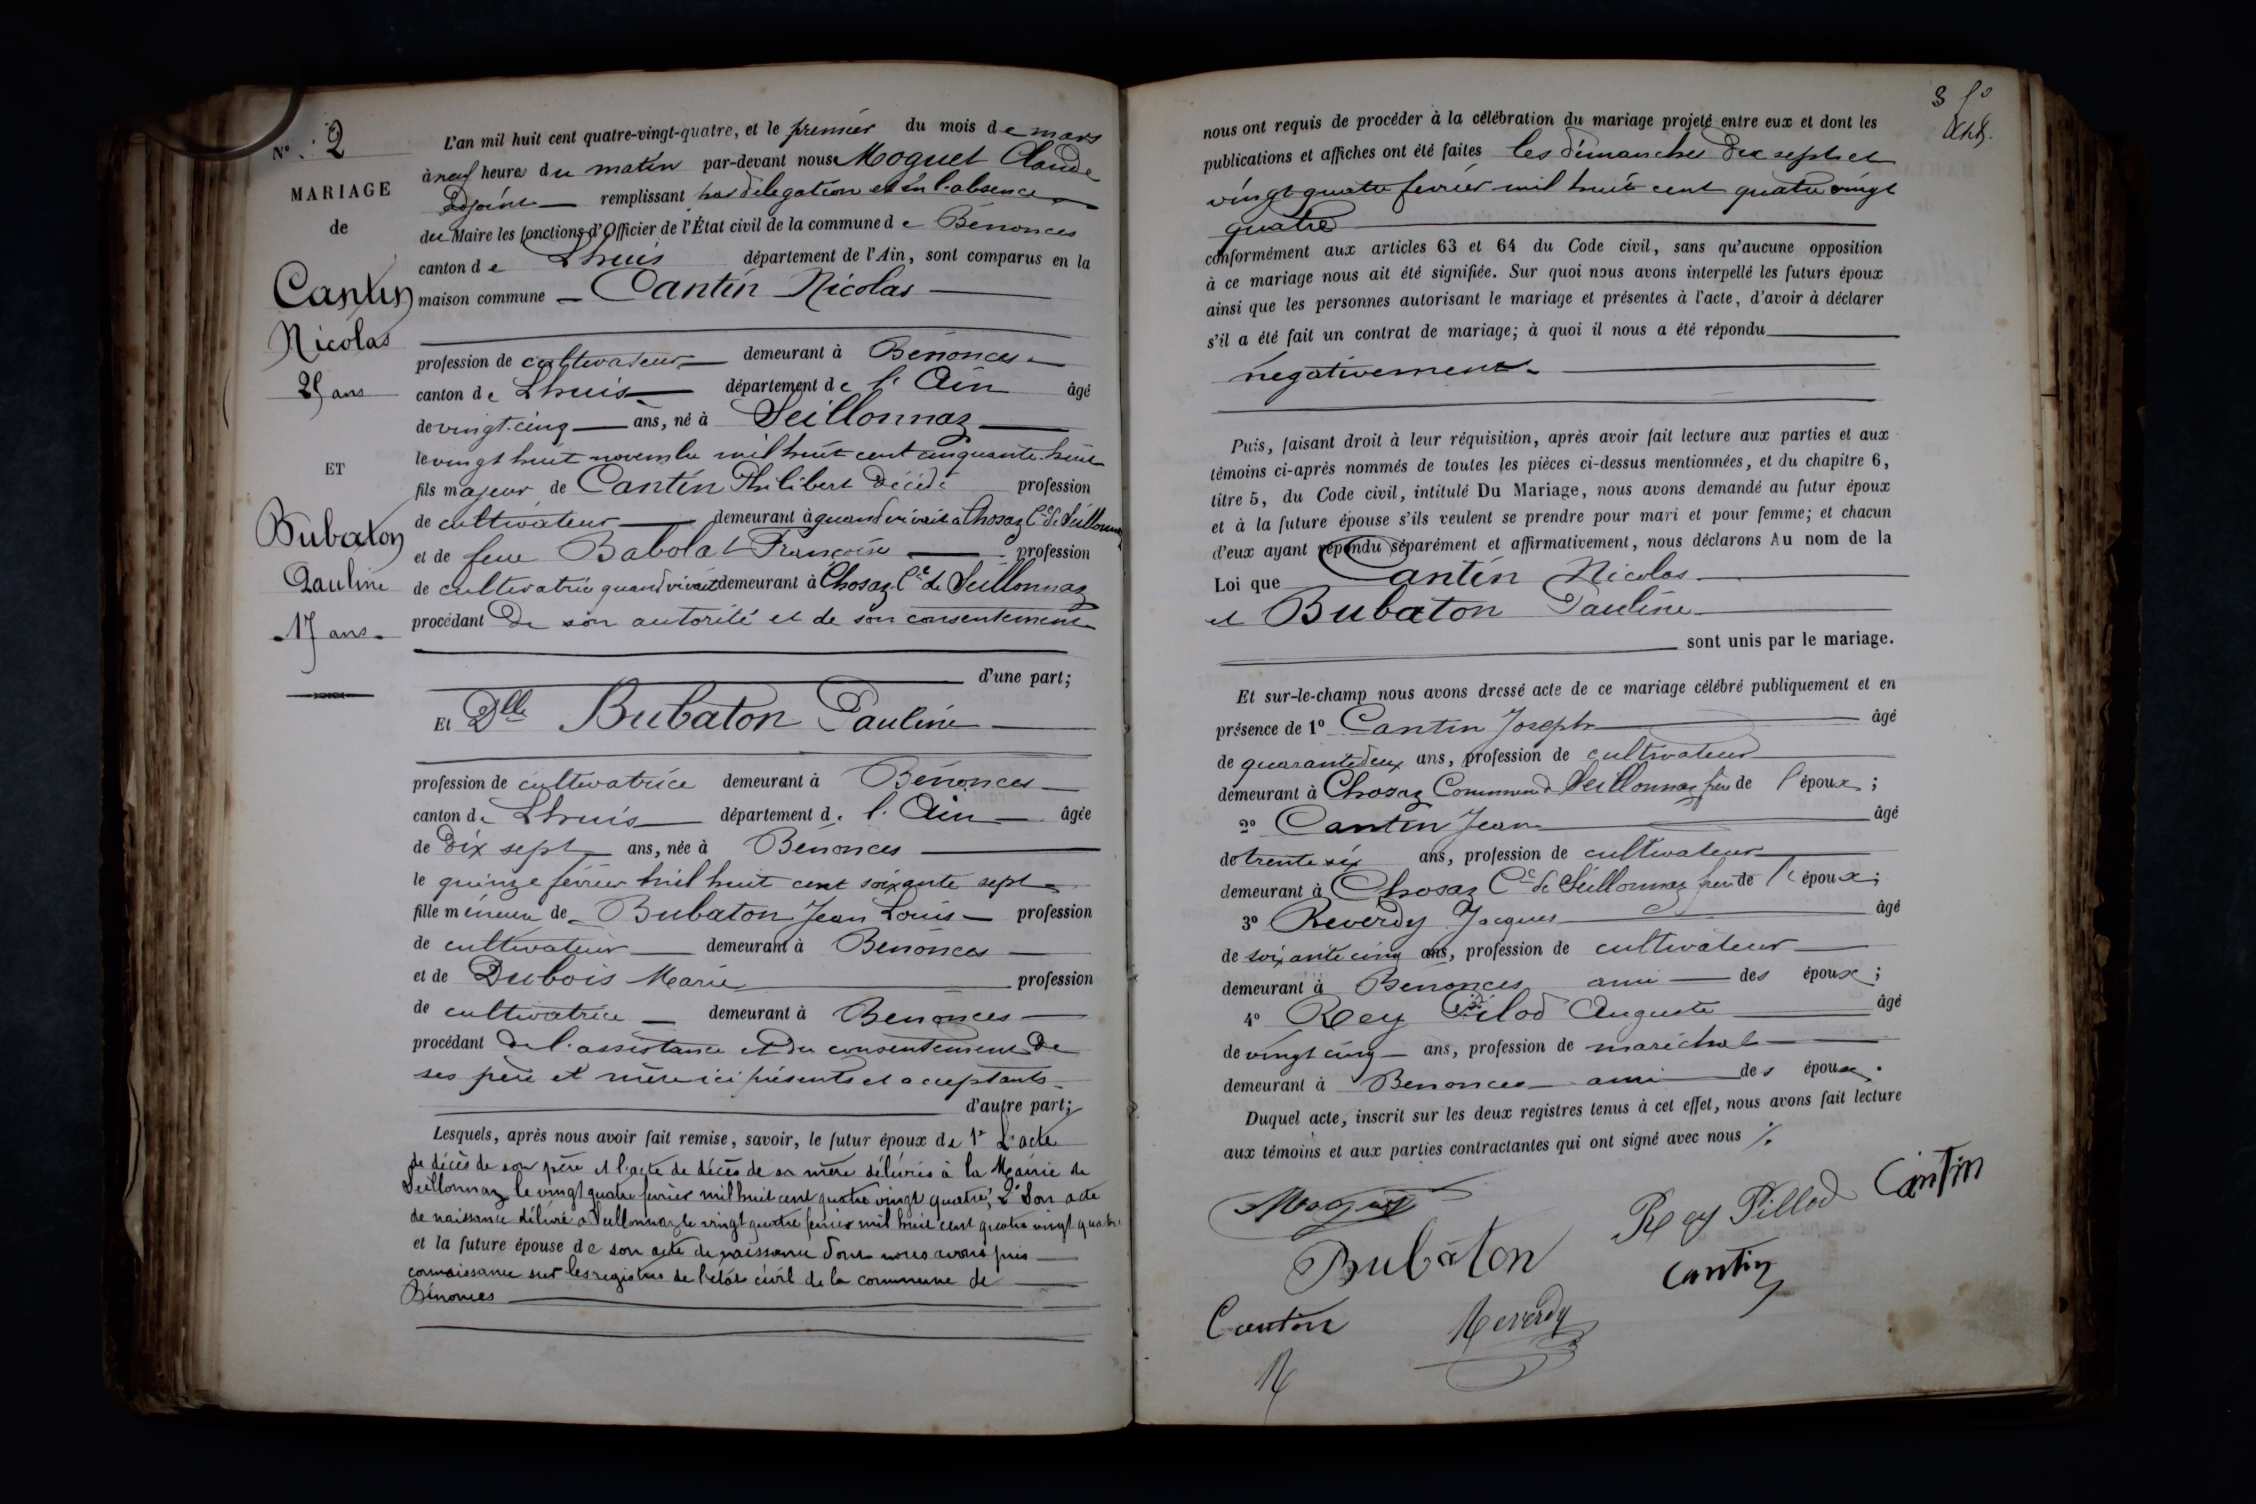 N° 2
MARIAGE
de
Cantin
Nicolas
25 ans
ET
Bubaton
Pauline
17 ans
L'an mil huit cent quatre-vingt-quatre, et le premier du mois de mars
à neuf heures du matin par-devant nous Moguet Claude
adjoint remplissant par délégation et en l'absence
du Maire les fonctions d'Officier de l'État civil de la commune de Bénonces
canton de Lhuis département de l'Ain, sont comparus en la
maison commune Cantin Nicolas
profession de cultivateur demeurant à Bénonces
canton de Lhuis département de l'Ain âgé
de vingt-cinq ans, né à Seillonnaz
le vingt huit novembre mil huit cent cinquante huit
fils majeur de Cantin Philibert décédé profession
de cultivateur demeurant à quand vivait à Chosaz Cne de Seillonnaz
et de feue Babolat Françoise profession
de cultivatrice quand vivait demeurant à Chosaz Cne de Seillonnaz
procédant de son autorité et de son consentement
d'une part;
Et Dlle Bubaton Pauline
profession de cultivatrice demeurant à Bénonces
canton de Lhuis département de l'Ain âgée
de dix sept ans, née à Bénonces
le quinze février mil huit cent soixante sept
fille mineure de Bubaton Jean Louis profession
de cultivateur demeurant à Bénonces
et de Dubois Marie profession
de cultivatrice demeurant à Bénonces
procédant de l'assistance et du consentement de
ses père et mère ici présents et acceptants
d'autre part;
Lesquels, après nous avoir fait remise, savoir, le futur époux de 1° L'acte
de décès de son père et l'acte de décès de sa mère délivrés à la Mairie de
Seillonnaz le vingt quatre fevrier mil huit cent quatre vingt quatre; 2° Son acte
de naissance délivré à Seillonnaz le vingt quatre fevrier mil huit cent quatre vingt quatre
et la future épouse de son acte de naissance dont nous avons pris
connaissance sur les registres de l'état civil de la commune de
Bénonces
3 fo
nous ont requis de procéder à la célébration du mariage projeté entre eux et dont les
publications et affiches ont été faites les dimanches dix sept et
vingt quatre fevrier mil huit cent quatre vingt
quatre
conformément aux articles 63 et 64 du Code civil, sans qu'aucune opposition
à ce mariage nous ait été signifiée. Sur quoi nous avons interpellé les futurs époux
ainsi que les personnes autorisant le mariage et présentes à l'acte, d'avoir à déclarer
s'il a été fait un contrat de mariage; à quoi il nous a été répondu
négativement.
Puis, faisant droit à leur réquisition, après avoir fait lecture aux parties et aux
témoins ci-après nommés de toutes les pièces ci-dessus mentionnées, et du chapitre 6,
titre 5, du Code civil, intitulé Du Mariage, nous avons demandé au futur époux
et à la future épouse s'ils veulent se prendre pour mari et pour femme; et chacun
d'eux ayant répondu séparément et affirmativement, nous déclarons Au nom de la
Loi que Cantin Nicolas
et Bubaton Pauline
sont unis par le mariage.
Et sur-le-champ nous avons dressé acte de ce mariage célébré publiquement et en
présence de 1° Cantin Joseph âgé
de quarante deux ans, profession de cultivateur
demeurant à Chosaz Commune de Seillonnaz frère de l'époux;
2° Cantin Jean âgé
de trente six ans, profession de cultivateur
demeurant à Chosaz Cne de Seillonnaz frère de l'époux;
3° Reverdy Jacques âgé
de soixante cinq ans, profession de cultivateur
demeurant à Bénonces ami des époux;
4° Rey Pilod Auguste âgé
de vingt cinq ans, profession de maréchal
demeurant à Bénonces ami des époux.
Duquel acte, inscrit sur les deux registres tenus à cet effet, nous avons fait lecture
aux témoins et aux parties contractantes qui ont signé avec nous
Moguet
Rey Pillod
Cantin
Bubaton
Cantin
Cantin
Reverdy